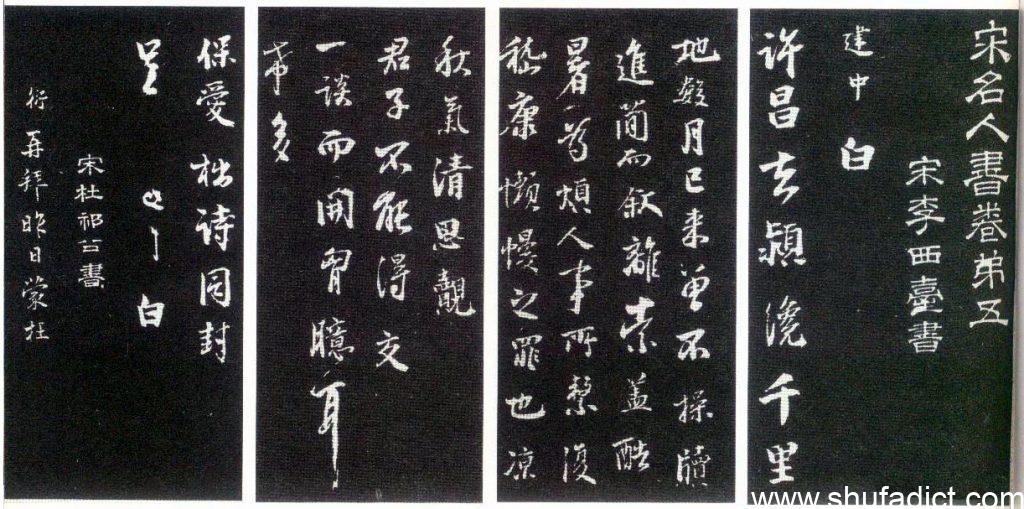 宋名人書卷弟五
宋李西臺書
建中 白
許昌去潁纔千里
地數月已来曾不操牘
進簡而敘離索蓋酷
暑之為煩人事所繫復
嵇康懶慢之罪也凉
秋氣清思覿
君子不能得交
一談而開胷臆耳
希多
保愛 拙詩同封
呈 白
宋杜祁公書
衍再拜昨日蒙枉
www.shufadict.com